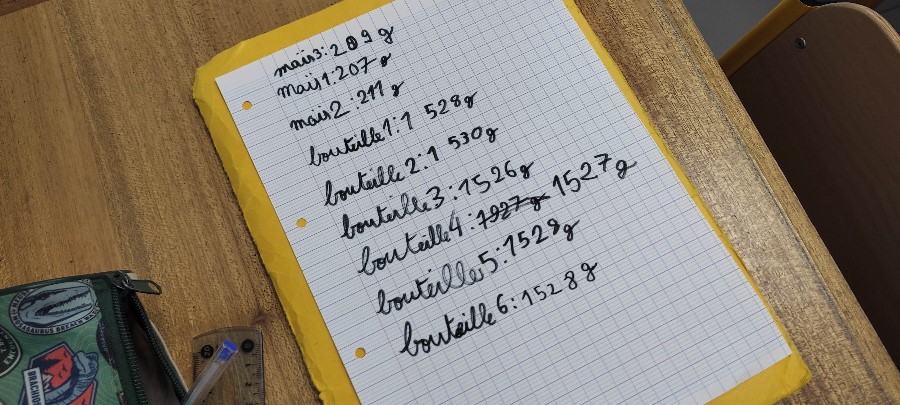 maïs3: 209 g
maïs1: 207 g
maïs2: 211 g
bouteille1: 1 528g
bouteille2: 1 530g
bouteille3: 1526g
bouteille4: 1927 g 1527g
bouteille5: 1528g
bouteille6: 1528g
BRACHIOS